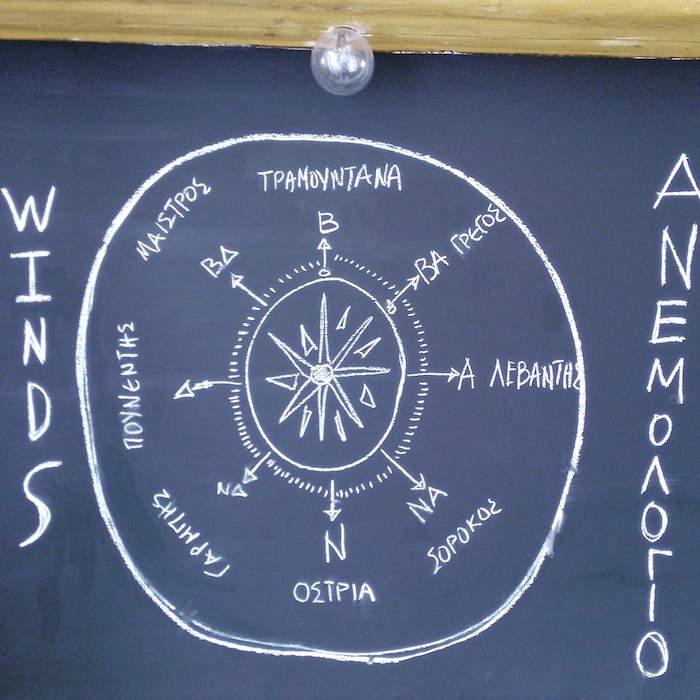 WINDS
ΤΡΑΜΟΥΝΤΑΝΑ
Β
ΜΑΙΣΤΡΟΣ
ΒΔ
ΒΑ ΓΡΕΓΟΣ
ΠΟΥΝΕΝΤΗΣ
Δ
Α ΛΕΒΑΝΤΗΣ
ΝΔ
ΓΑΡΜΠΗΣ
Ν
ΟΣΤΡΙΑ
ΝΑ
ΣΟΡΟΚΟΣ
ΑΝΕΜΟΛΟΓΙΟ